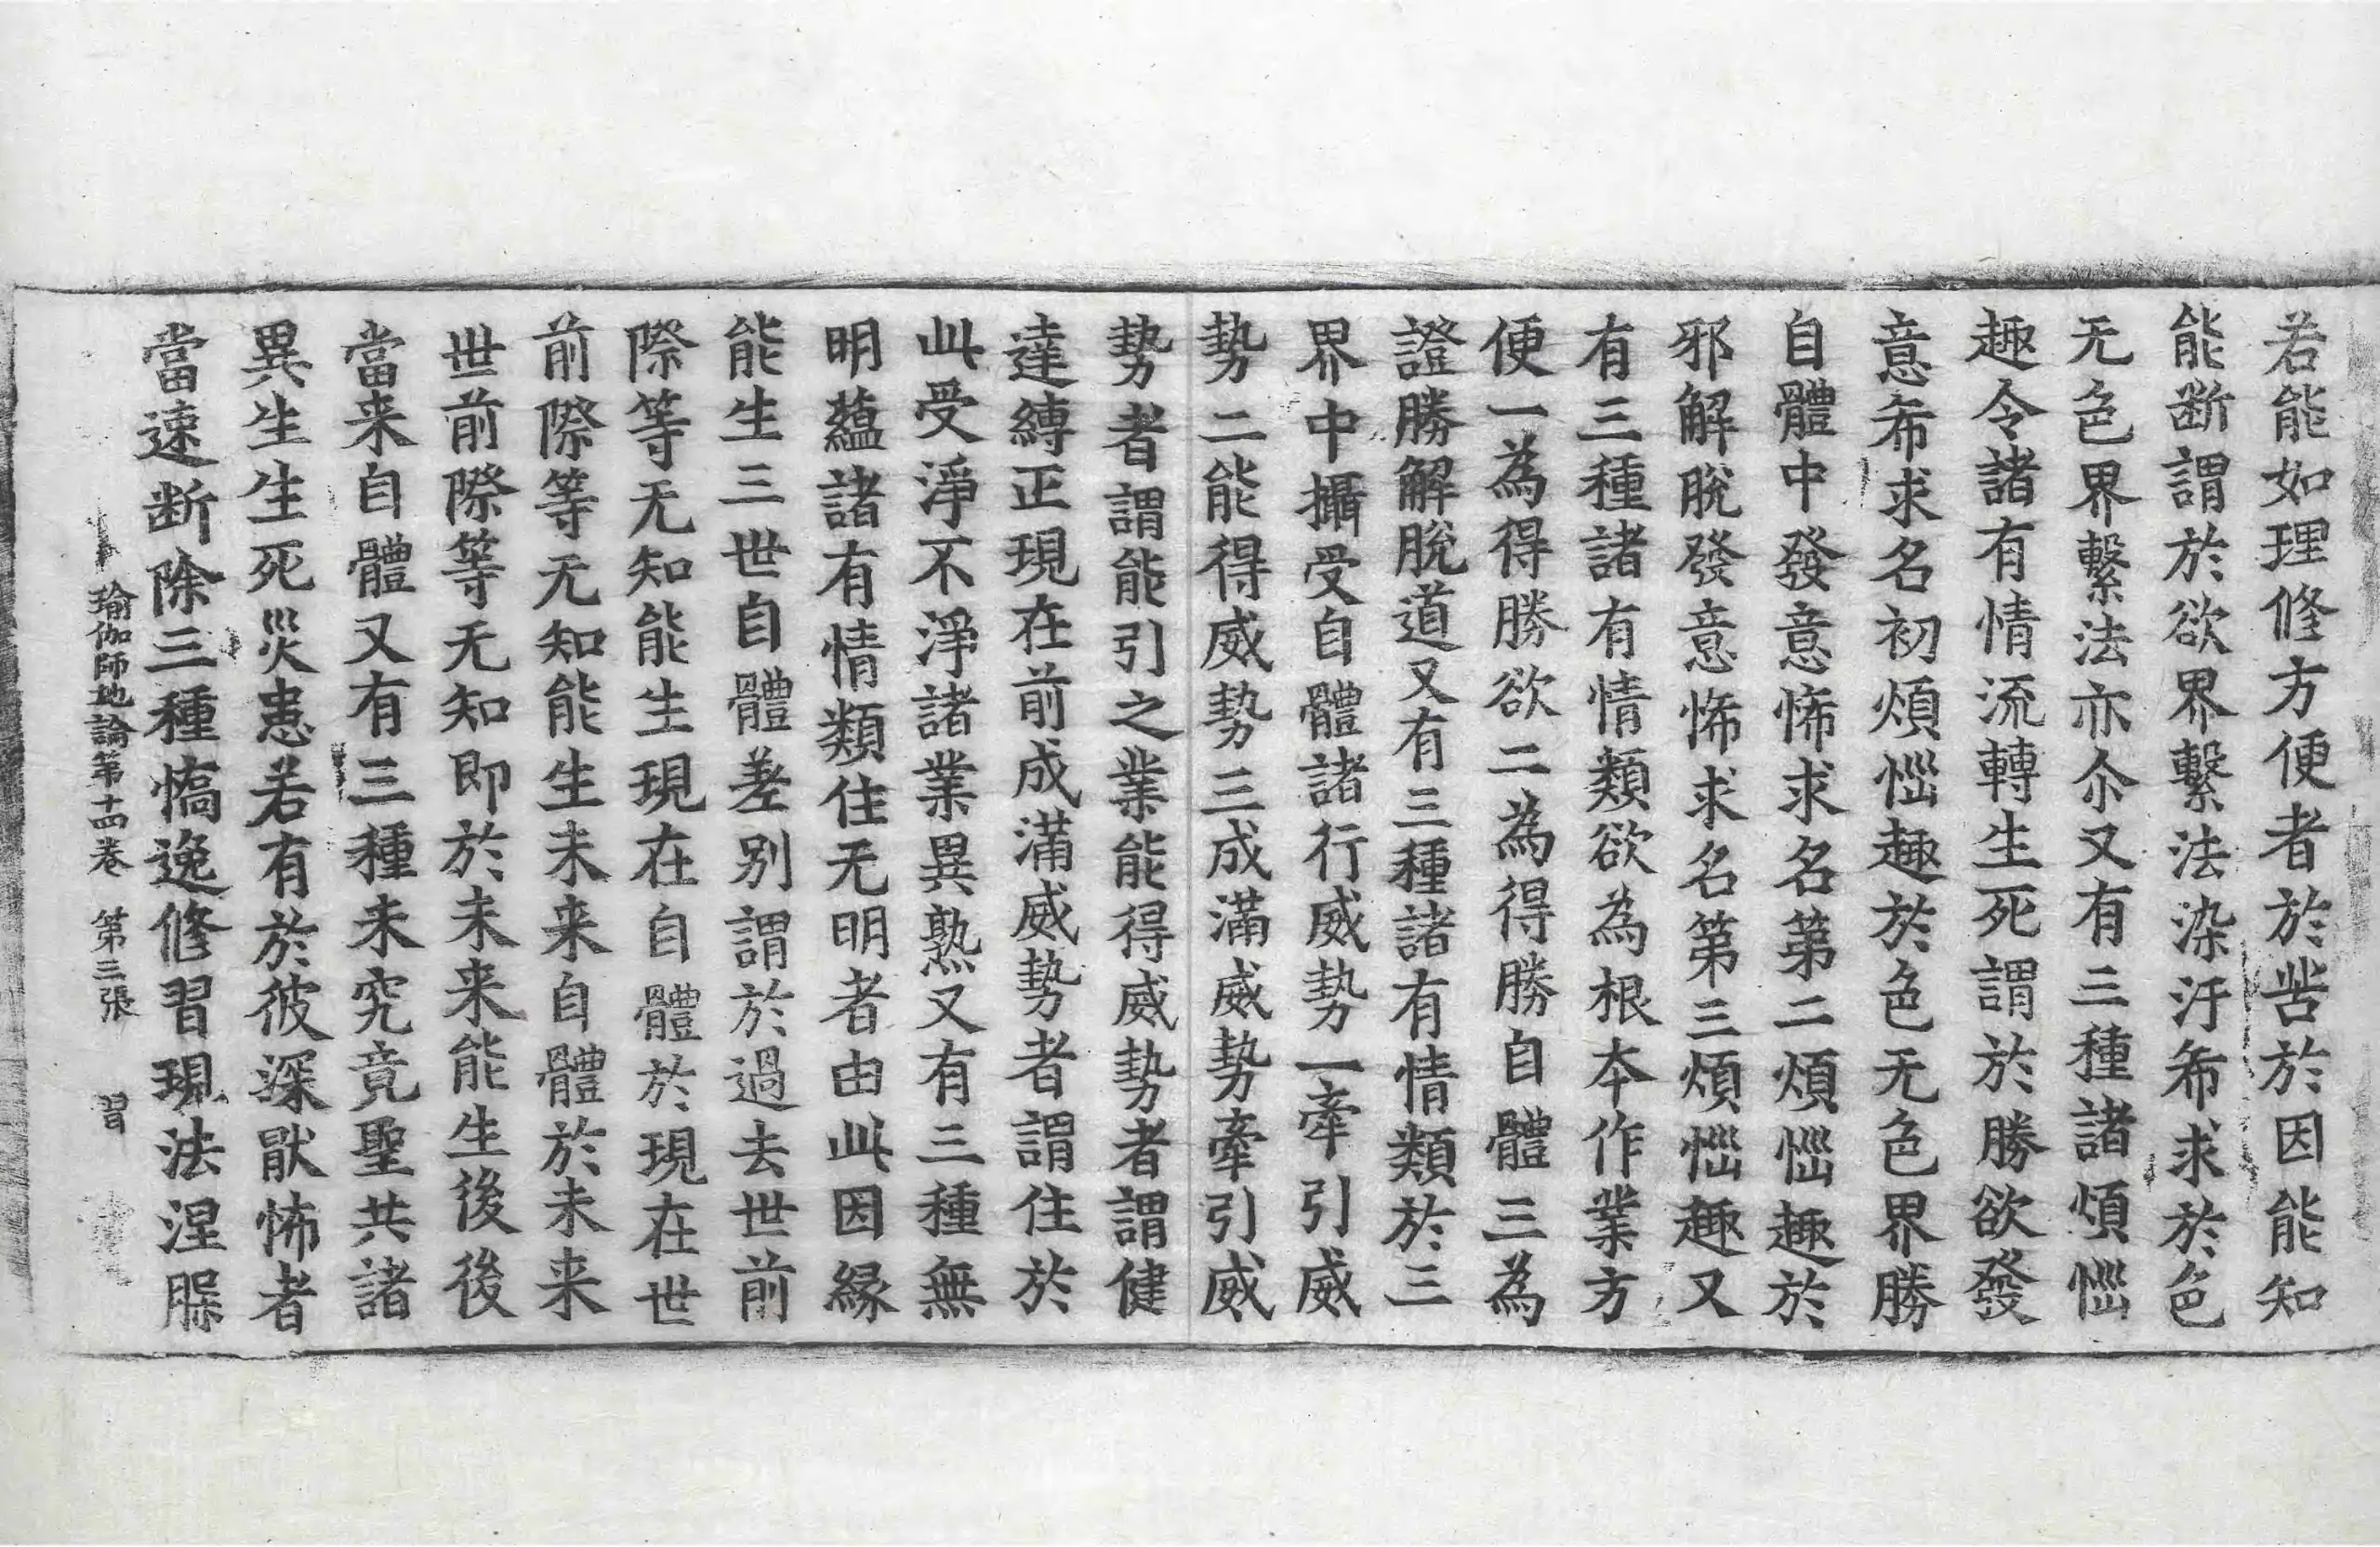 若能如理修方便者於苦於因能知
能断謂於欲界繫法染汙希求於色
无色界繫法亦尒又有三種諸煩惱
趣令諸有情流轉生死謂於勝欲發
意希求名初煩惱趣於色无色界勝
自體中發意悕求名第二煩惱趣於
邪解脫發意悕求名第三煩惱趣又
有三種諸有情類欲為根本作業方
便一為得勝欲二為得勝自體三為
證勝解脫道又有三種諸有情類於三
界中攝受自體諸行威勢一牽引威
勢二能得威勢三成滿威勢牽引威
勢者謂能引之業能得威勢者謂健
達縛正現在前成滿威勢者謂住於
此受淨不淨諸業異熟又有三種無
明蘊諸有情類住无明者由此因縁
能生三世自體差別謂於過去世前
際等无知能生現在自體於現在世
前際等无知能生未来自體於未来
世前際等无知即於未来能生後後
當来自體又有三種未究竟聖共諸
異生生死災患若有於彼深猒怖者
當速断除三種憍逸修習現法涅槃
瑜伽師地論第十四卷 第三張 習